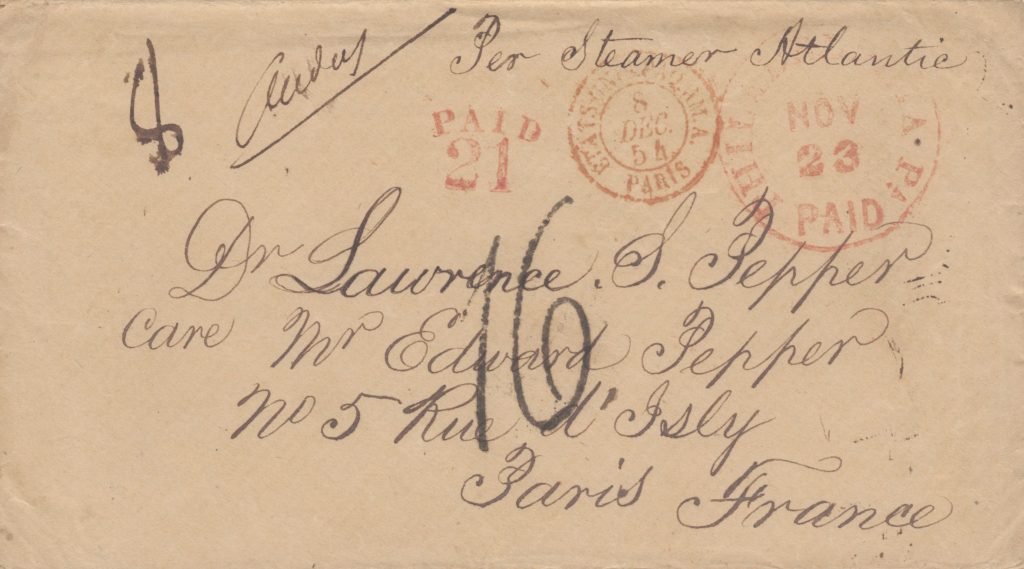 Per Steamer Atlantic
PAID
21
8
DEC.
54
PARIS
NOV
23
PAID
Dr Lawrence S. Pepper
16
Care Mr Edward Pepper
No 5 Rue d'Isly
Paris France